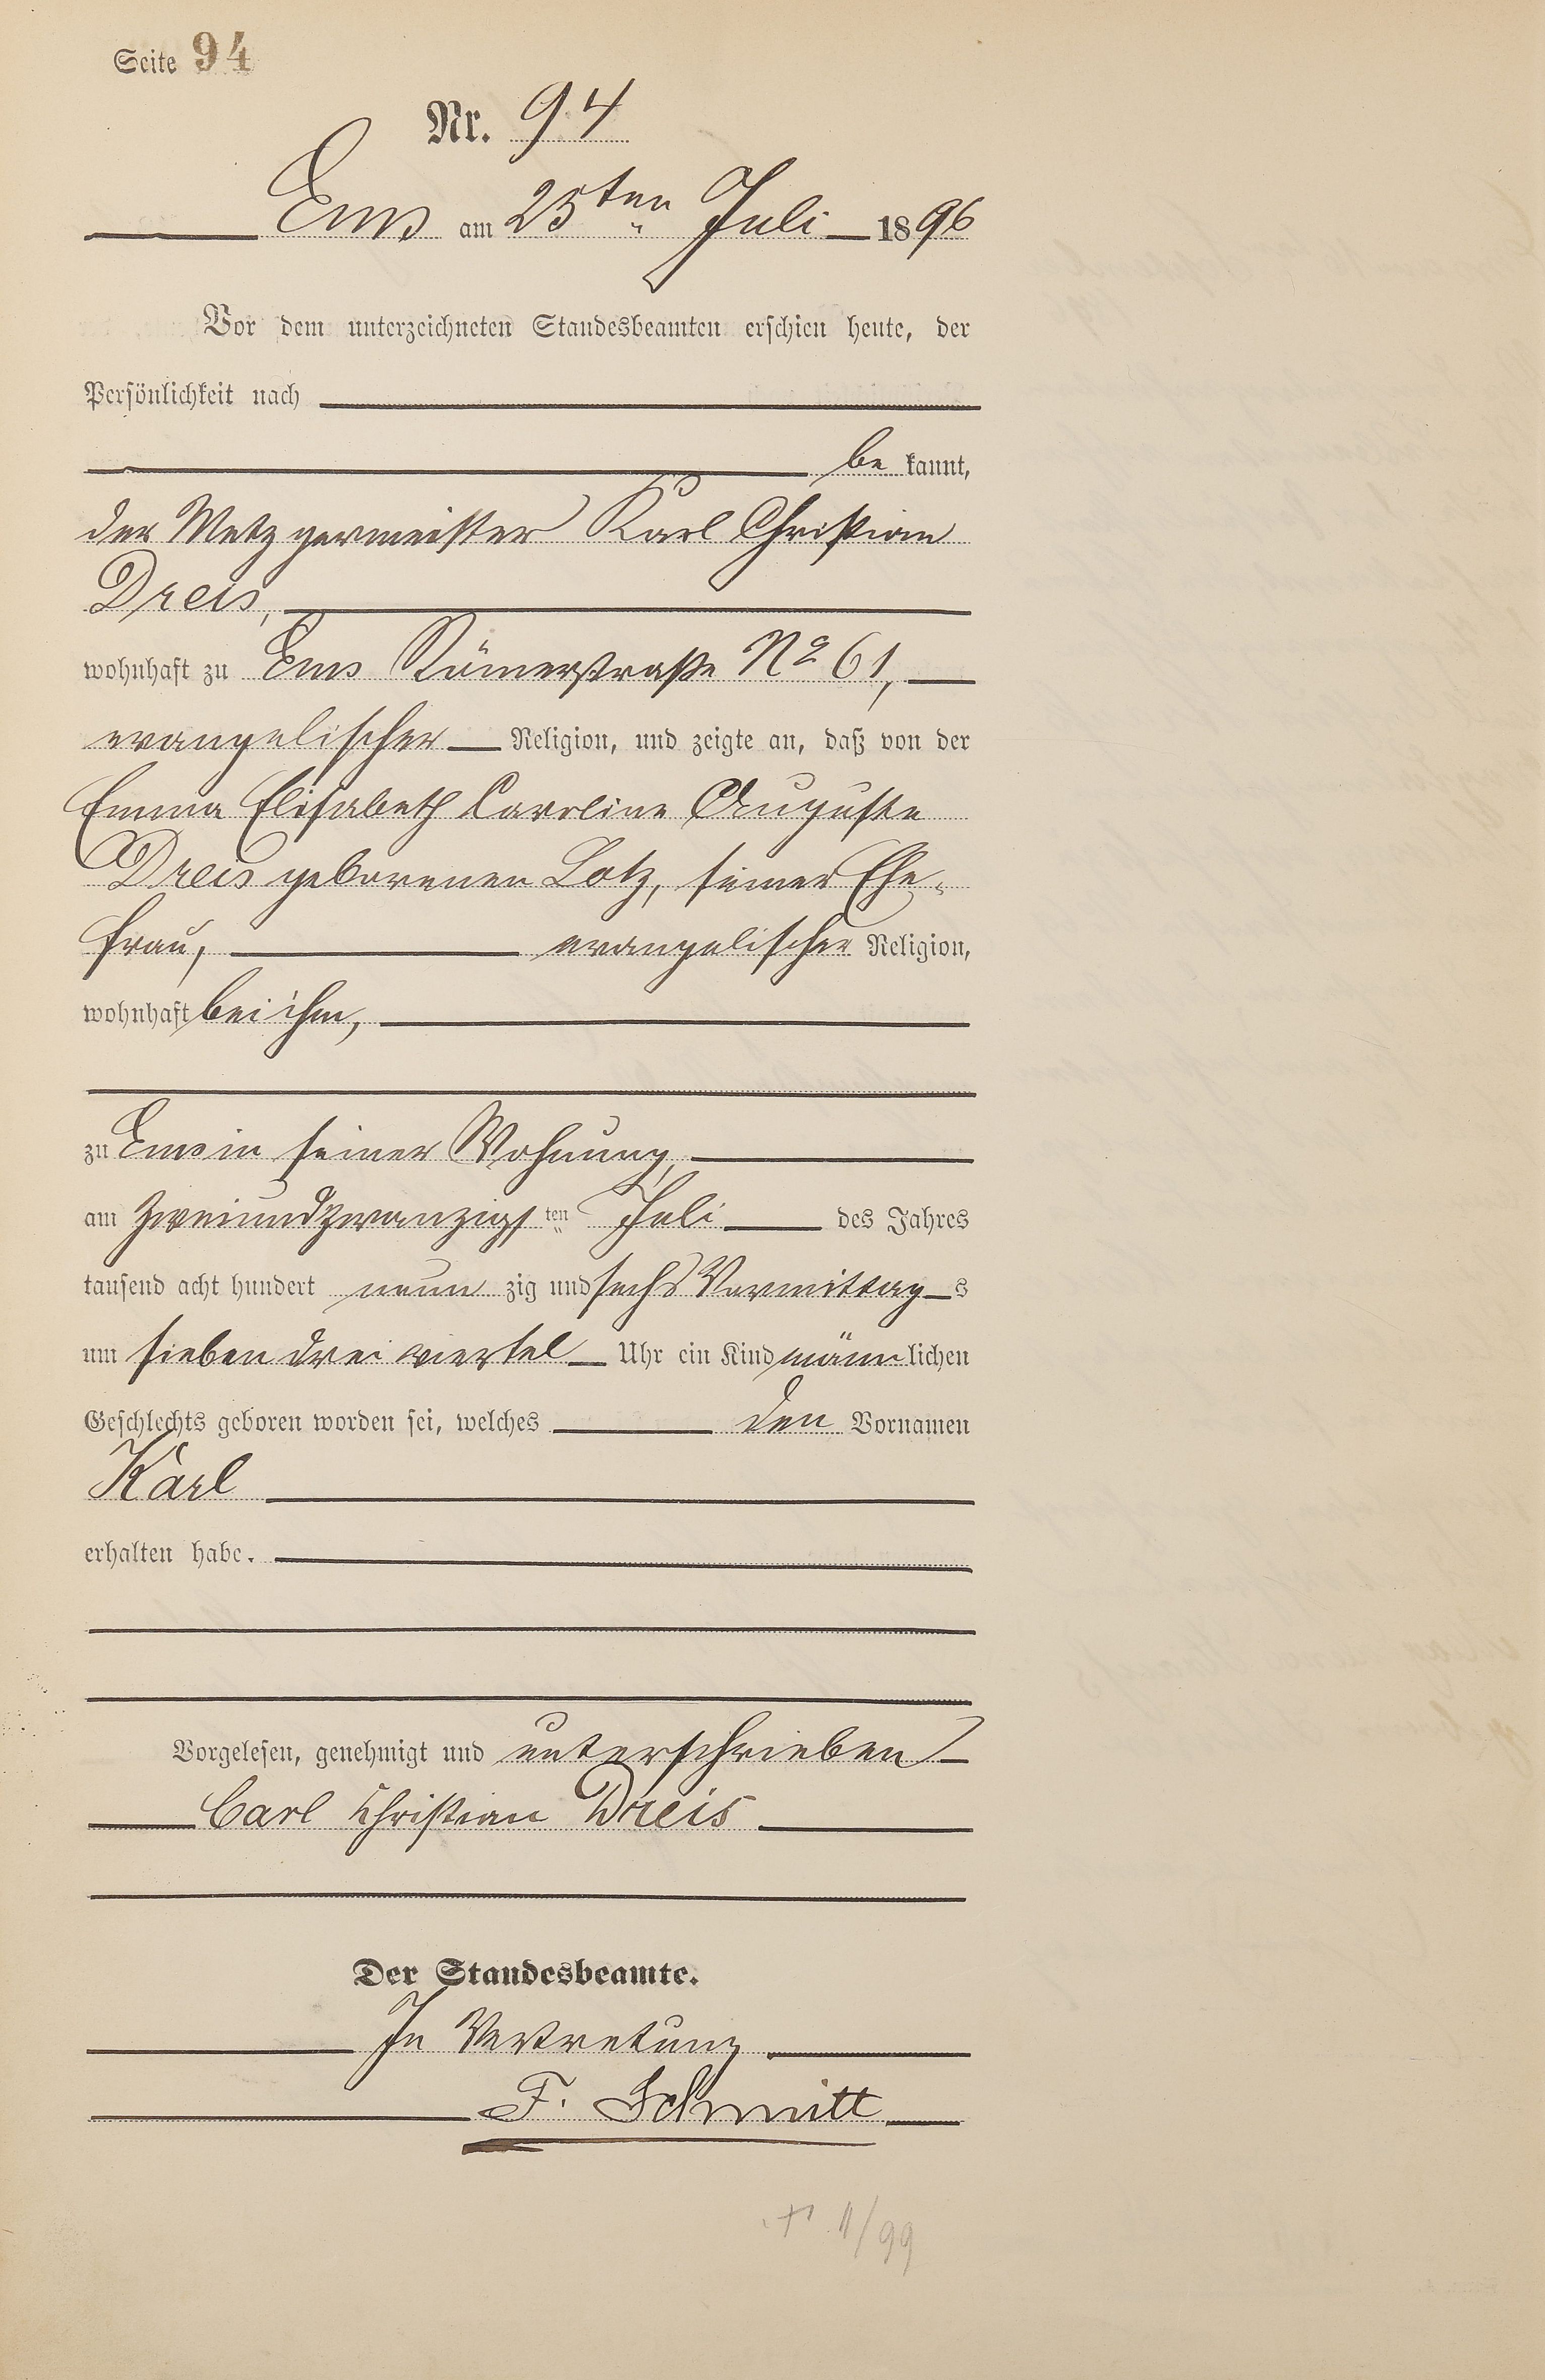 Seite 94
Nr. 94
Ems am 25ten Juli 1896
Vor dem unterzeichneten Standesbeamten erschien heute, der
Persönlichkeit nach
be kannt,
der Metzgermeister Karl Christian
Dreis,
wohnhaft zu Ems Römerstraße No 61,
evangelischer Religion, und zeigte an, daß von der
Emma Elisabeth Caroline Auguste
Dreis geborenen Lotz, seiner Ehe-
frau, evangelischer Religion,
wohnhaft bei ihm,
zu Ems in seiner Wohnung,
am zweiundzwanzigsten Juli des Jahres
tausend acht hundert neun zig und sechs Vormittags
um sieben drei viertel Uhr ein Kind männlichen
Geschlechts geboren worden sei, welches den Vornamen
Karl
erhalten habe.
Vorgelesen, genehmigt und unterschrieben
Carl Christian Dreis
Der Standesbeamte.
In Vertretung
F. Schmitt
+ 11/99